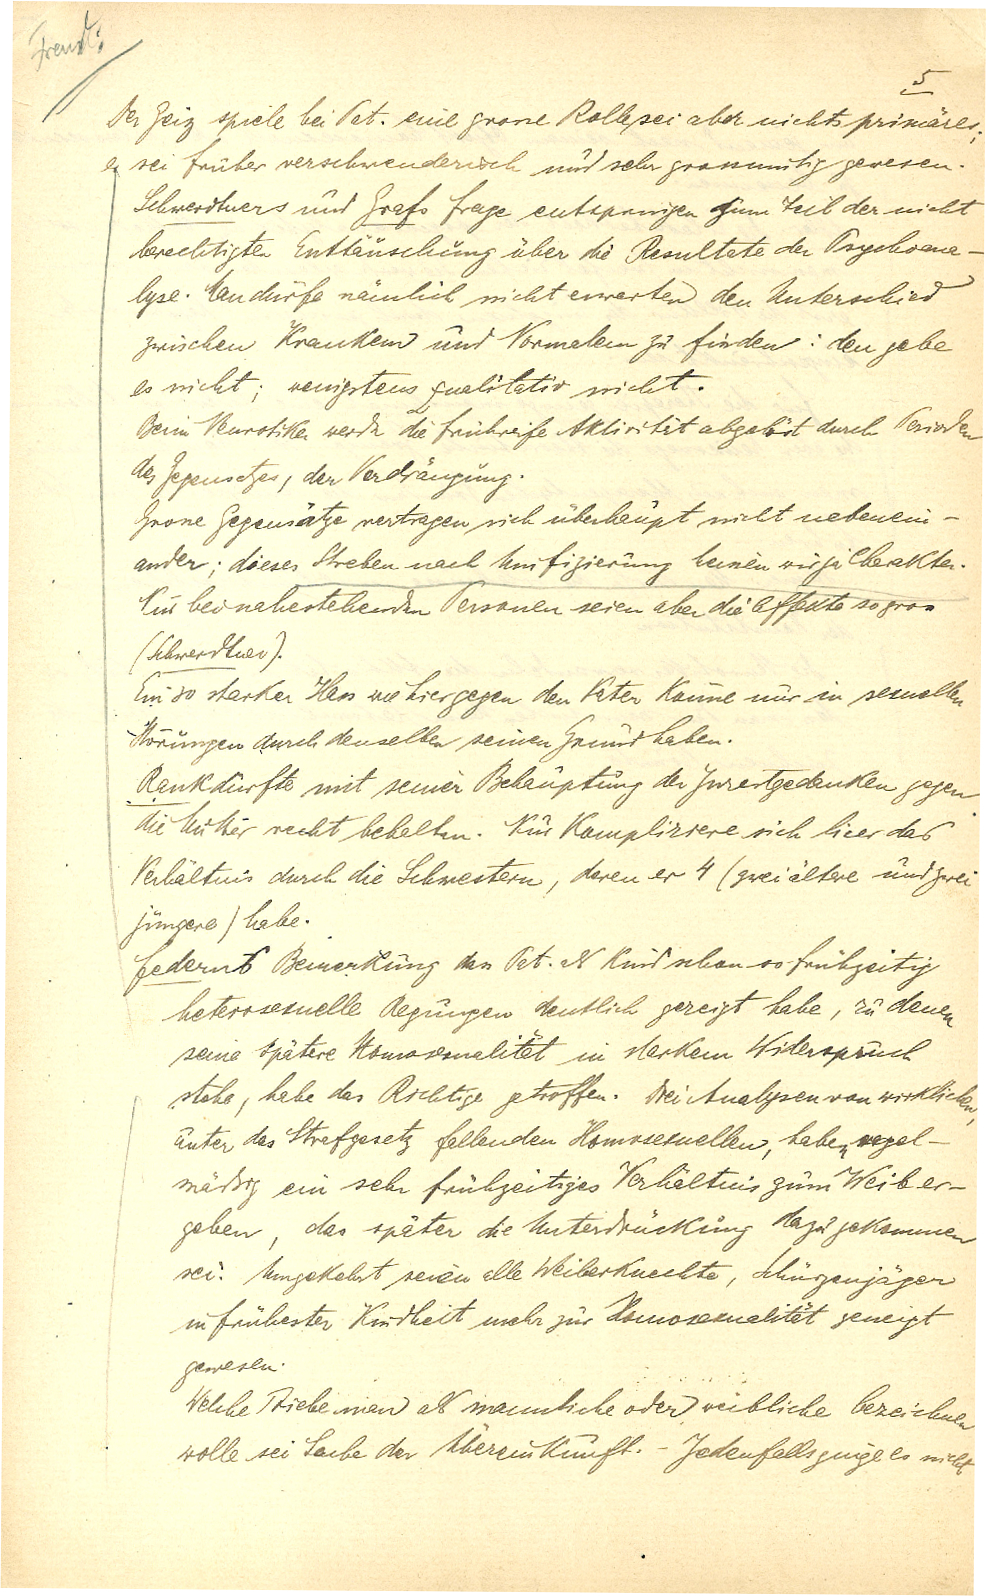 Freud:
5
Der Geiz spiele bei Pat. eine grosse Rolle, sei aber nichts primäres;
er sei früher verschwenderisch und sehr grossmütig gewesen.
Schwerdtners und Grafs Frage entspringen zum Teil der nicht
berechtigten Enttäuschung über die Resultate der Psychoana-
lyse. Man dürfe nämlich nicht erwarten den Unterschied
zwischen Kranken und Normalen zu finden: den gebe
es nicht; wenigstens qualitativ nicht.
Beim Neurotiker werde die frühreife Aktivität abgelöst durch Perioden
des Gegensatzes, der Verdrängung.
Grosse Gegensätze vertragen sich überhaupt nicht nebenein-
ander; dieses Streben nach Unifizierung heissen wir ja Charakter.
Nur bei nahestehenden Personen seien aber die Effekte so gross
(Schwerdtner).
Ein so starker Hass wie hier gegen den Vater könne nur in sexuellen
Störungen durch denselben seinen Grund haben.
Rank dürfte mit seiner Behauptung der Inzestgedanken gegen
die Mutter recht behalten. Nur kompliziere sich hier das
Verhältnis durch die Schwestern, deren er 4 (zwei ältere und zwei
jüngere) habe.
Federns Bemerkung dass Pat. als Kind schon so frühzeitig
heterosexuelle Regungen deutlich gezeigt habe, zu denen
seine spätere Homosexualität in starkem Widerspruch
stehe, habe das Richtige getroffen. Drei Analysen von wirklichen,
unter das Strafgesetz fallenden Homosexuellen, haben regel-
mässig ein sehr frühzeitiges Verhältnis zum Weib er-
geben, das später die Unterdrückung dazu gekommen
sei. Umgekehrt seien alle Weiberknechte, Schürzenjäger
in frühester Kindheit mehr zur Homosexualität geneigt
gewesen.
Welche Triebe man als männliche oder weibliche bezeichnen
wolle sei Sache der Übereinkunft. – Jedenfalls ginge es nicht